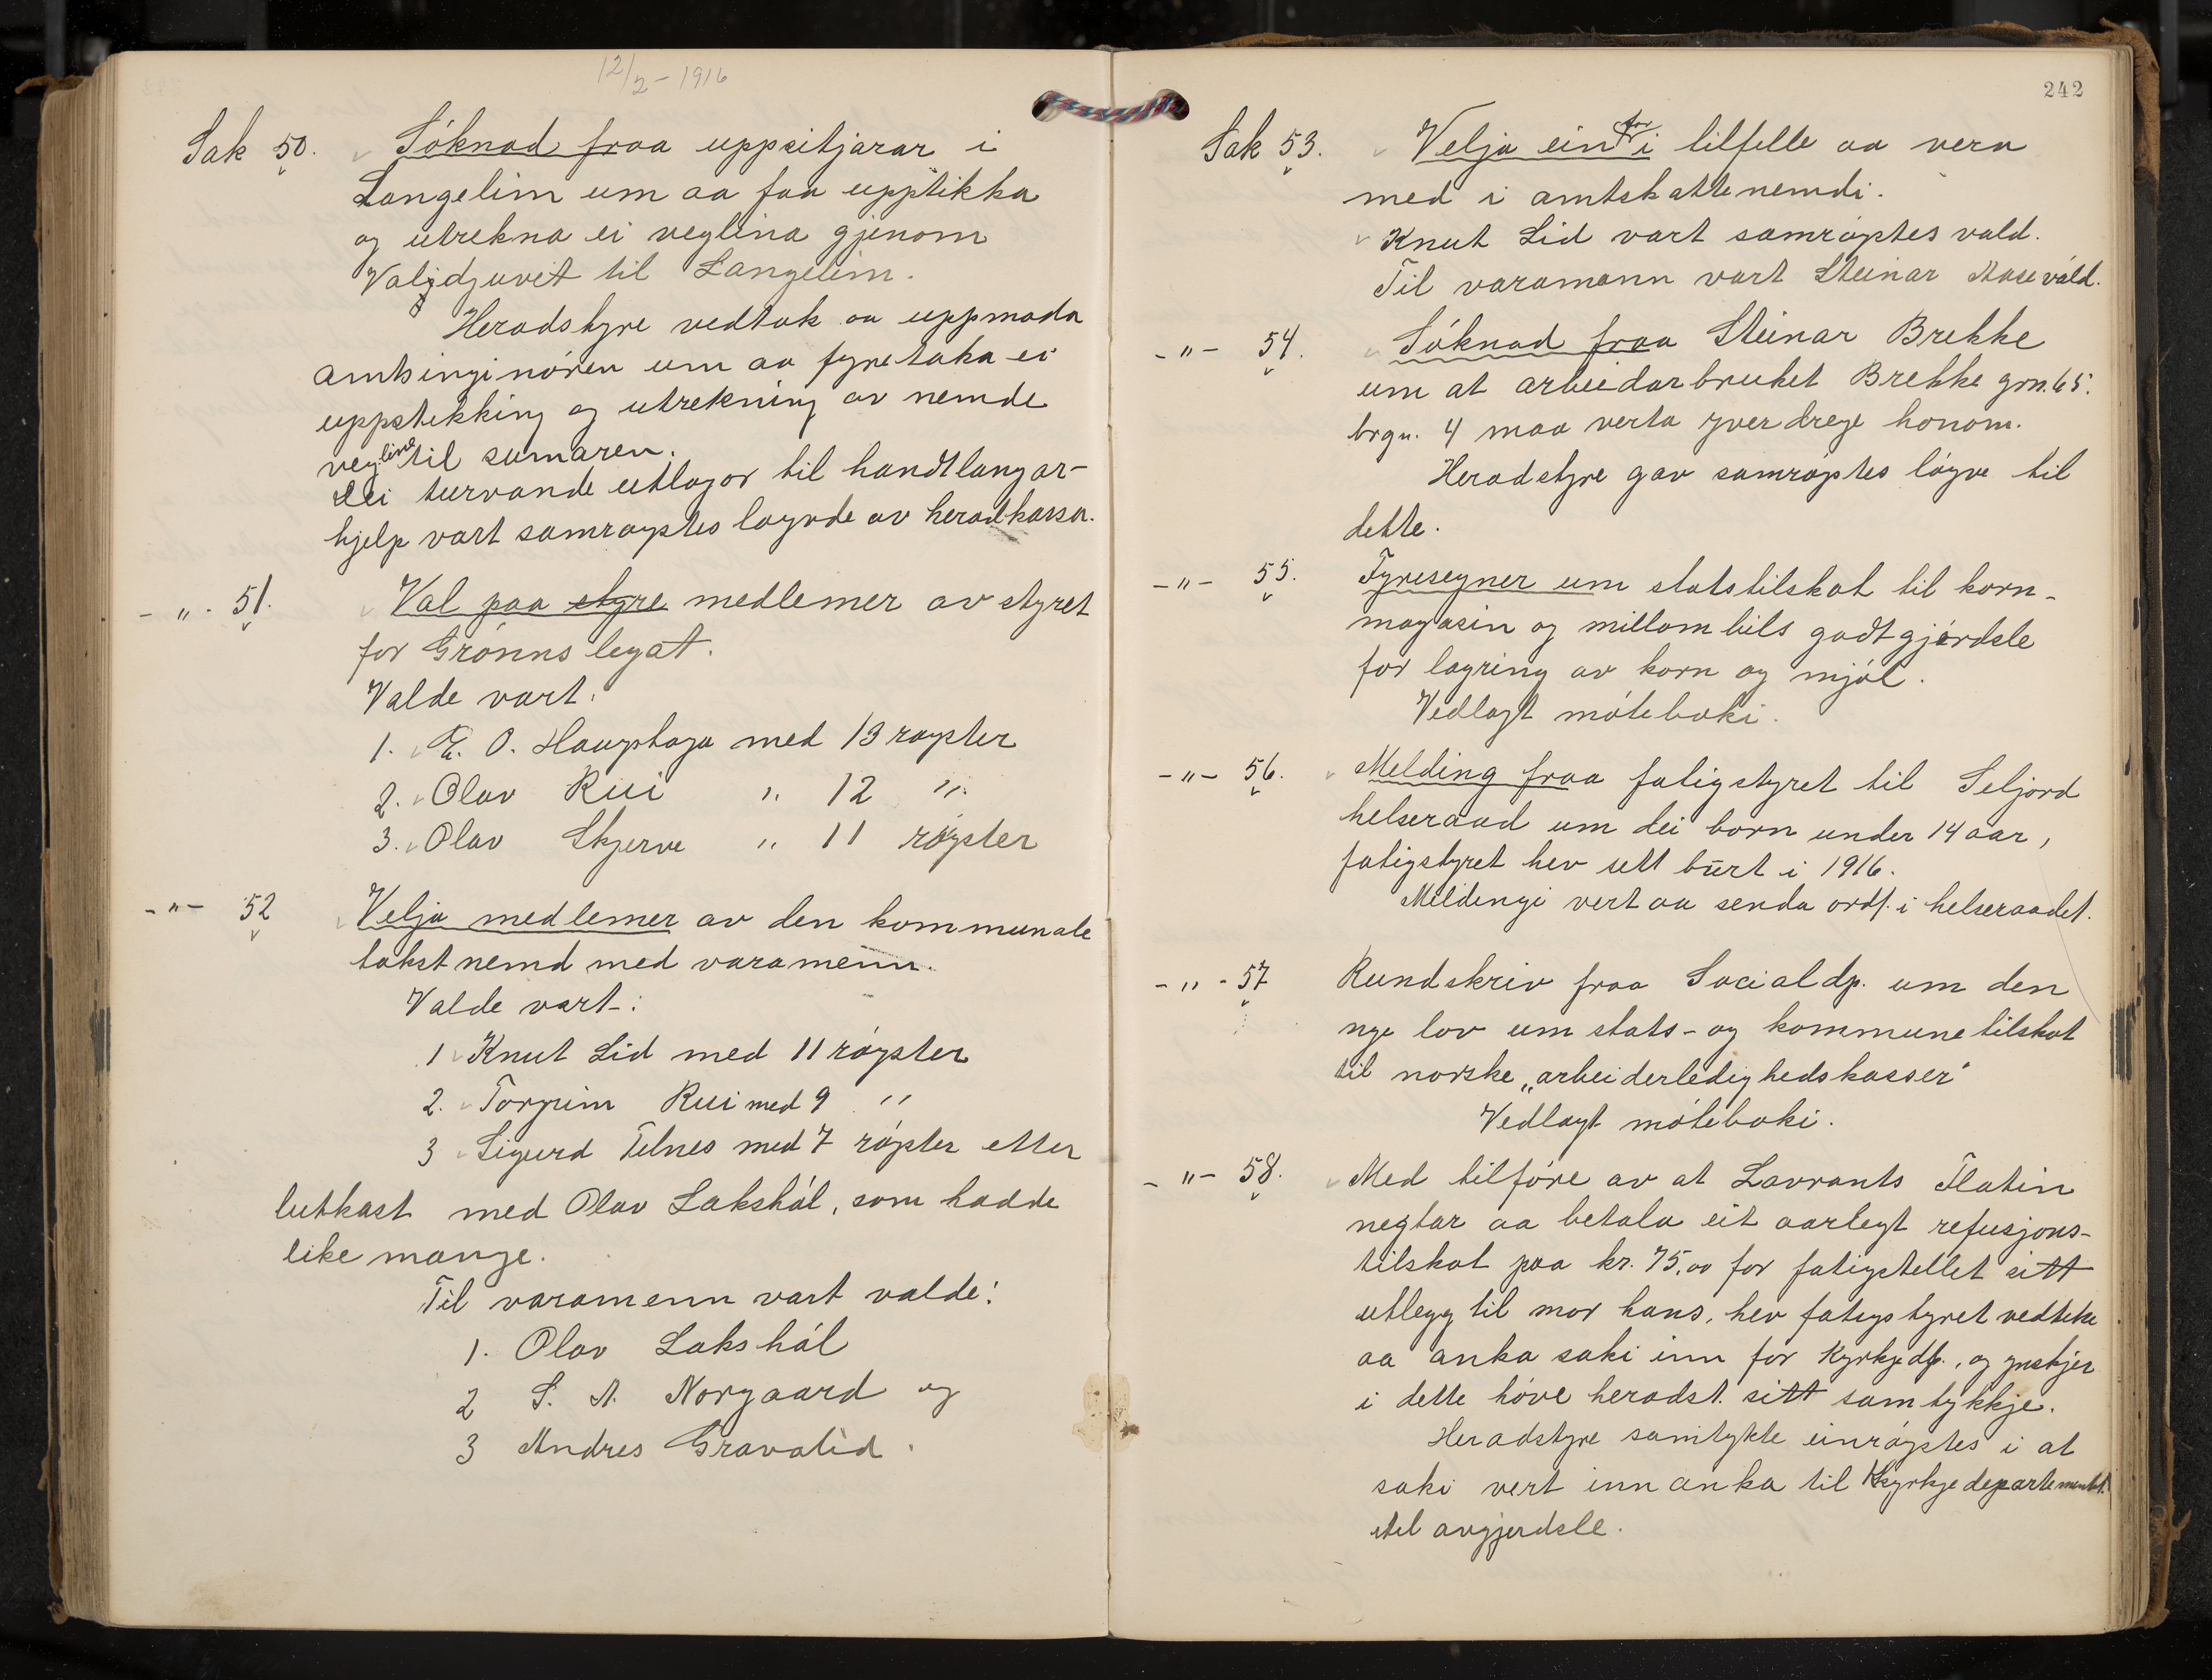 12/2 - 1916
Sak 50. Sóknad fraa uppsitjarar i
Langelim um aa faa uppstikka
og utrekna ei veglina gjenom
Valjdjuvet til Langelim.
Heradstyre vedtok aa uppmoda
amtsinginóren um aa fyretaka ei
uppstikking og utrekning av nemde
veglina til sumaren.
Dei turvande utlogor til handtlangar-
hjelp vart samrøystes løyvde av heradkassa.
- „ - 51. Val paa styre medlemer av styret
for Grónns legat.
Valde vart:
1. E. O. Haugstoga med 13 røyster
2. Olav Rui „ 12 „
3. Olav Skjerve „ 11 røyster
- „ - 52 Velja medlemer av den kommunale
takstnemd med varamenn.
Valde vart:
1 Knut Lid med 11 róyster
2. Torgrim Rui med 9 „
3 Sigurd Telnes med 7 róyster etter
lutkast med Olav Lakshól, som hadde
like mange.
Til varamenn vart valde:
1. Olav Lakshól
2 S. A. Norgaard og
3 Andres Gravalid.
242
Sak 53. Velja ein for i tilfelle aa vera
med i amtskattenemdi.
Knut Lid vart samróystes vald.
Til varamann vart Steinar Aase vald.
- „ - 54. Sóknad fraa Steinar Brekke
um at arbeidarbruket Brekke grn. 65.
brgn. 4 maa verta yverdrege honom.
Heradstyre gav samróystes lóyve til
dette.
- „ - 55. Fyresegner um statstilskot til korn-
magasin og millombils godtgjórdsle
for lagring av korn og mjól.
Vedlagt móteboki.
- „ - 56. Melding fraa fatigstyret til Seljord
helseraad um dei born under 14 aar,
fatigstyret hev sett burt i 1916.
Meldingi vert aa senda ordf. i helseraadet.
- „ - 57 Rundskriv fraa Socialdp. um den
nye lov um stats- og kommunetilskot
til norske „arbeiderledighedskasser"
Vedlagt móteboki.
- „ - 58. Med tilfóre av at Lavrants Flatin
negtar aa betala eit aarlegt refusjons-
tilskot paa kr. 75,00 for fatigstellet sitt
utlegg til mor hans, hev fatigstyret vedteke
aa anka saki inn for Kyrkjedp., og ynskjer
i dette hóve heradst. sitt samtykkje.
Heradstyre samtykte einróystes i at
saki vert innanka til Kyrkjedepartementet
til avgjerdsle.